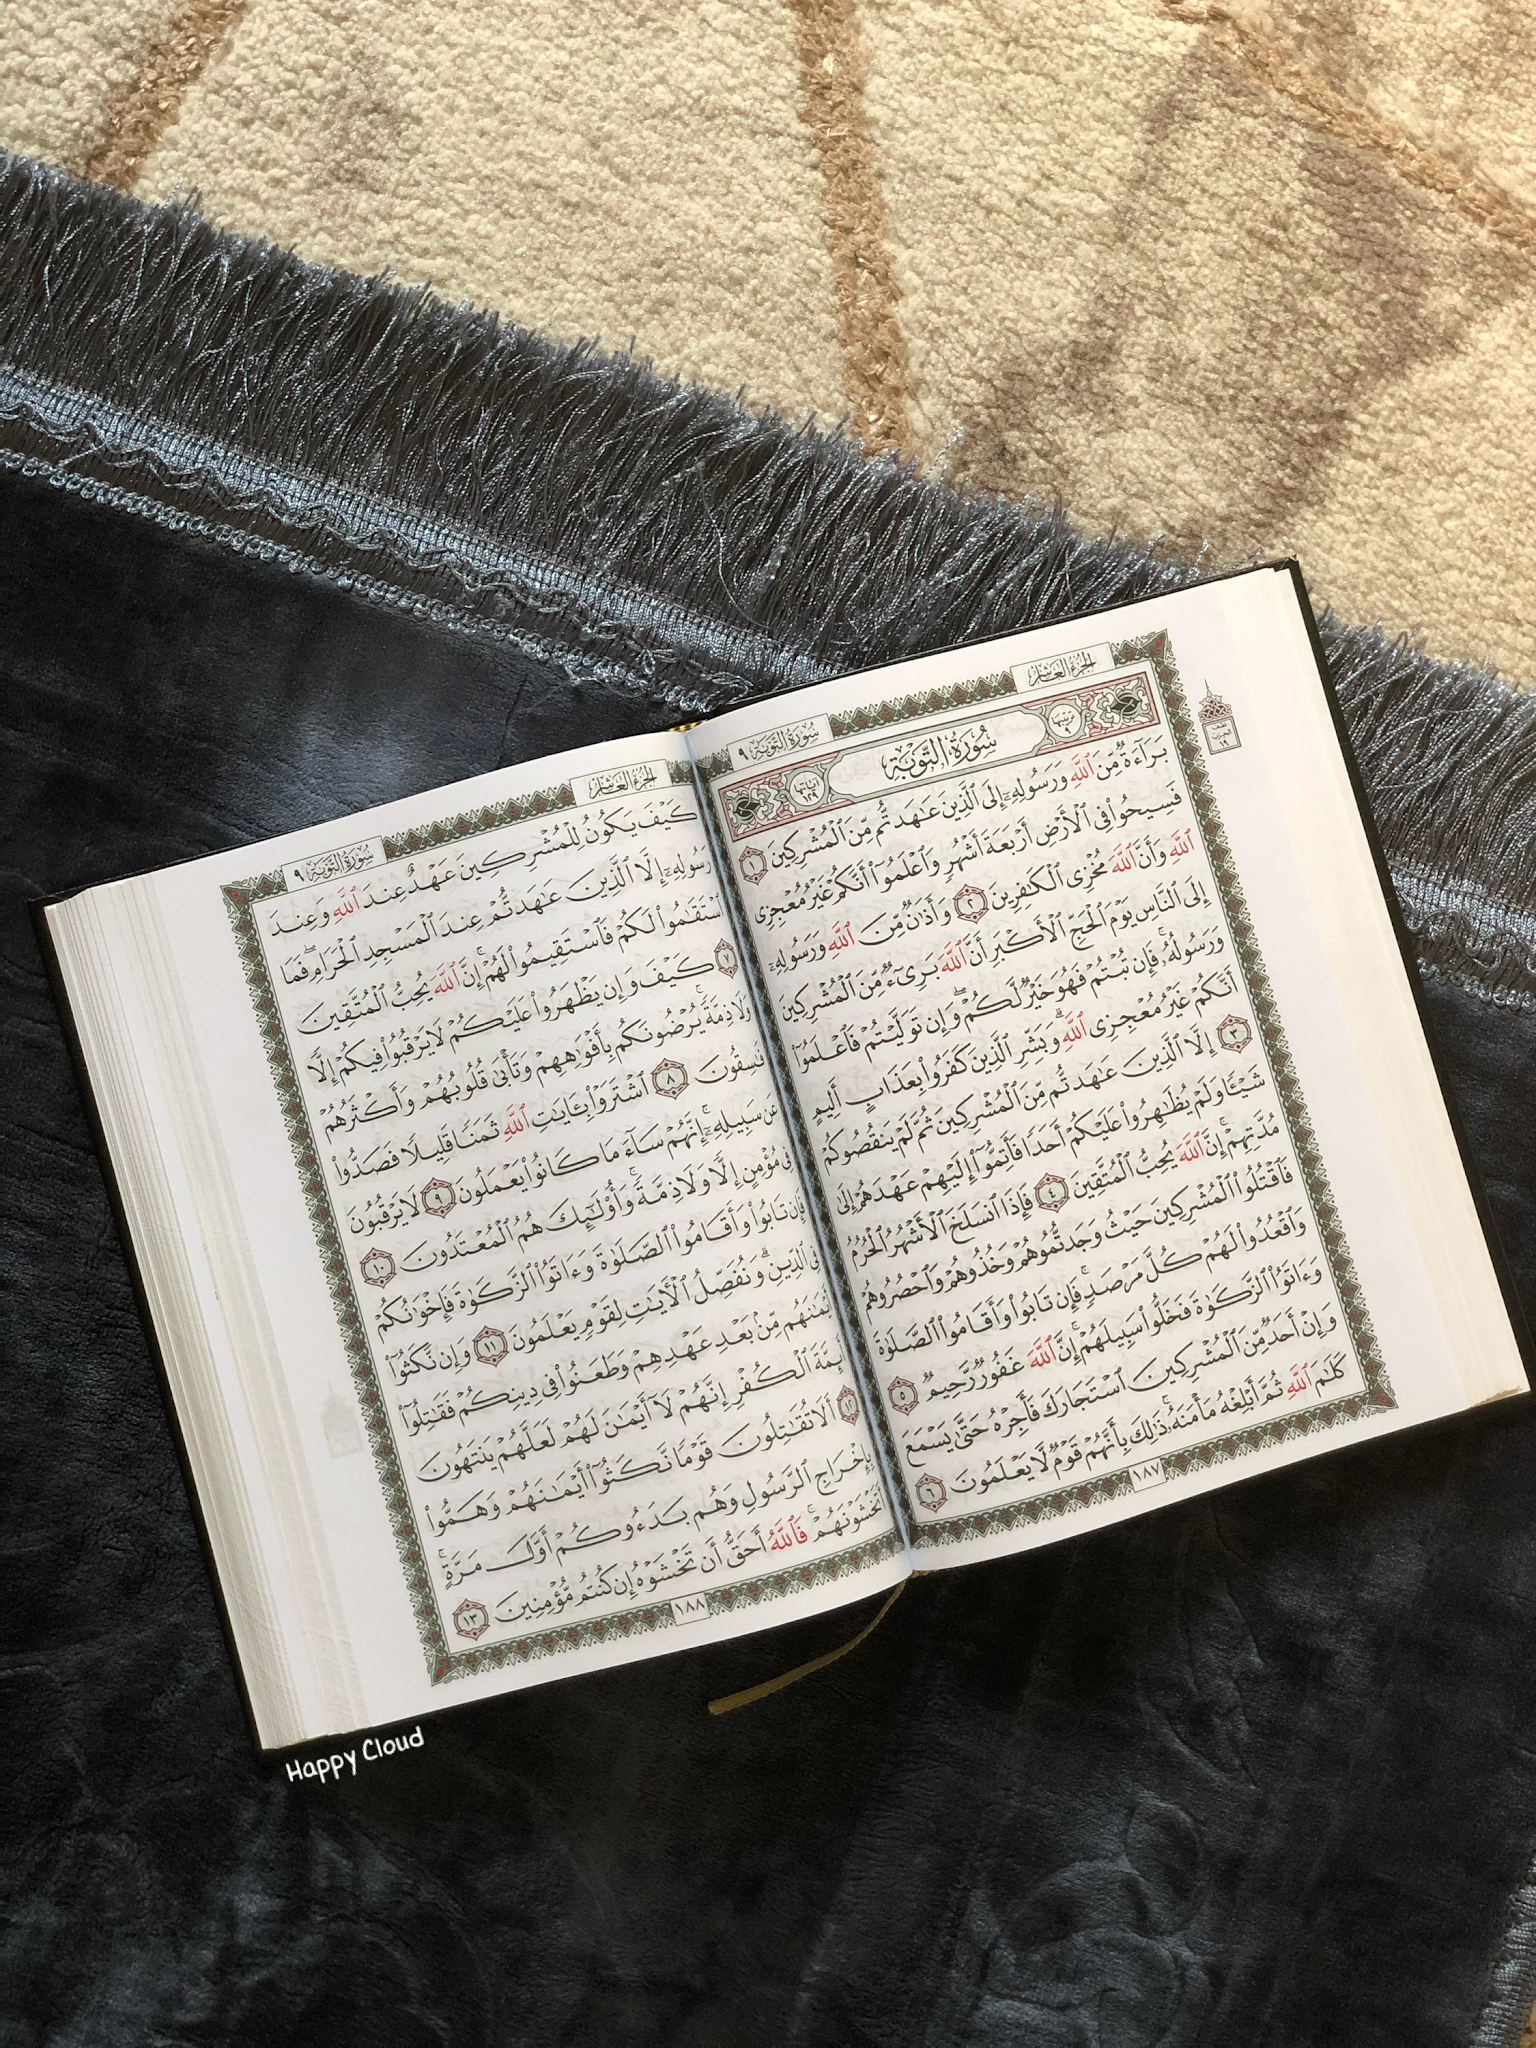 الجزء العاشر
سورة التوبة ٩
ترتيبها ٩
سُورَةُ التَّوْبَةِ
آياتها ١٢٩
بَرَآءَةٌ مِّنَ ٱللَّهِ وَرَسُولِهِۦٓ إِلَى ٱلَّذِينَ عَٰهَدتُّم مِّنَ ٱلْمُشْرِكِينَ ١
فَسِيحُوا۟ فِى ٱلْأَرْضِ أَرْبَعَةَ أَشْهُرٍ وَٱعْلَمُوٓا۟ أَنَّكُمْ غَيْرُ مُعْجِزِى
ٱللَّهِ وَأَنَّ ٱللَّهَ مُخْزِى ٱلْكَٰفِرِينَ ٢ وَأَذَٰنٌ مِّنَ ٱللَّهِ وَرَسُولِهِۦٓ
إِلَى ٱلنَّاسِ يَوْمَ ٱلْحَجِّ ٱلْأَكْبَرِ أَنَّ ٱللَّهَ بَرِىٓءٌ مِّنَ ٱلْمُشْرِكِينَ
وَرَسُولُهُۥ فَإِن تُبْتُمْ فَهُوَ خَيْرٌ لَّكُمْ وَإِن تَوَلَّيْتُمْ فَٱعْلَمُوٓا۟
أَنَّكُمْ غَيْرُ مُعْجِزِى ٱللَّهِ وَبَشِّرِ ٱلَّذِينَ كَفَرُوا۟ بِعَذَابٍ أَلِيمٍ
٣ إِلَّا ٱلَّذِينَ عَٰهَدتُّم مِّنَ ٱلْمُشْرِكِينَ ثُمَّ لَمْ يَنقُصُوكُمْ
شَيْـًٔا وَلَمْ يُظَٰهِرُوا۟ عَلَيْكُمْ أَحَدًا فَأَتِمُّوٓا۟ إِلَيْهِمْ عَهْدَهُمْ إِلَىٰ
مُدَّتِهِمْ إِنَّ ٱللَّهَ يُحِبُّ ٱلْمُتَّقِينَ ٤ فَإِذَا ٱنسَلَخَ ٱلْأَشْهُرُ ٱلْحُرُمُ
فَٱقْتُلُوا۟ ٱلْمُشْرِكِينَ حَيْثُ وَجَدتُّمُوهُمْ وَخُذُوهُمْ وَٱحْصُرُوهُمْ
وَٱقْعُدُوا۟ لَهُمْ كُلَّ مَرْصَدٍ فَإِن تَابُوا۟ وَأَقَامُوا۟ ٱلصَّلَوٰةَ
وَءَاتَوُا۟ ٱلزَّكَوٰةَ فَخَلُّوا۟ سَبِيلَهُمْ إِنَّ ٱللَّهَ غَفُورٌ رَّحِيمٌ ٥
وَإِنْ أَحَدٌ مِّنَ ٱلْمُشْرِكِينَ ٱسْتَجَارَكَ فَأَجِرْهُ حَتَّىٰ يَسْمَعَ
كَلَٰمَ ٱللَّهِ ثُمَّ أَبْلِغْهُ مَأْمَنَهُۥ ذَٰلِكَ بِأَنَّهُمْ قَوْمٌ لَّا يَعْلَمُونَ ٦
١٨٧
الجزء العاشر
سورة التوبة ٩
كَيْفَ يَكُونُ لِلْمُشْرِكِينَ عَهْدٌ عِندَ ٱللَّهِ وَعِندَ
رَسُولِهِۦٓ إِلَّا ٱلَّذِينَ عَٰهَدتُّمْ عِندَ ٱلْمَسْجِدِ ٱلْحَرَامِ فَمَا
ٱسْتَقَٰمُوا۟ لَكُمْ فَٱسْتَقِيمُوا۟ لَهُمْ إِنَّ ٱللَّهَ يُحِبُّ ٱلْمُتَّقِينَ
٧ كَيْفَ وَإِن يَظْهَرُوا۟ عَلَيْكُمْ لَا يَرْقُبُوا۟ فِيكُمْ إِلًّا
وَلَا ذِمَّةً يُرْضُونَكُم بِأَفْوَٰهِهِمْ وَتَأْبَىٰ قُلُوبُهُمْ وَأَكْثَرُهُمْ
فَٰسِقُونَ ٨ ٱشْتَرَوْا۟ بِـَٔايَٰتِ ٱللَّهِ ثَمَنًا قَلِيلًا فَصَدُّوا۟
عَن سَبِيلِهِۦٓ إِنَّهُمْ سَآءَ مَا كَانُوا۟ يَعْمَلُونَ ٩ لَا يَرْقُبُونَ
فِى مُؤْمِنٍ إِلًّا وَلَا ذِمَّةً وَأُو۟لَٰٓئِكَ هُمُ ٱلْمُعْتَدُونَ ١٠
فَإِن تَابُوا۟ وَأَقَامُوا۟ ٱلصَّلَوٰةَ وَءَاتَوُا۟ ٱلزَّكَوٰةَ فَإِخْوَٰنُكُمْ
فِى ٱلدِّينِ وَنُفَصِّلُ ٱلْـَٔايَٰتِ لِقَوْمٍ يَعْلَمُونَ ١١ وَإِن نَّكَثُوٓا۟
أَيْمَٰنَهُم مِّنۢ بَعْدِ عَهْدِهِمْ وَطَعَنُوا۟ فِى دِينِكُمْ فَقَٰتِلُوٓا۟
أَئِمَّةَ ٱلْكُفْرِ إِنَّهُمْ لَآ أَيْمَٰنَ لَهُمْ لَعَلَّهُمْ يَنتَهُونَ
١٢ أَلَا تُقَٰتِلُونَ قَوْمًا نَّكَثُوٓا۟ أَيْمَٰنَهُمْ وَهَمُّوا۟
بِإِخْرَاجِ ٱلرَّسُولِ وَهُم بَدَءُوكُمْ أَوَّلَ مَرَّةٍ
أَتَخْشَوْنَهُمْ فَٱللَّهُ أَحَقُّ أَن تَخْشَوْهُ إِن كُنتُم مُّؤْمِنِينَ ١٣
١٨٨
Happy Cloud